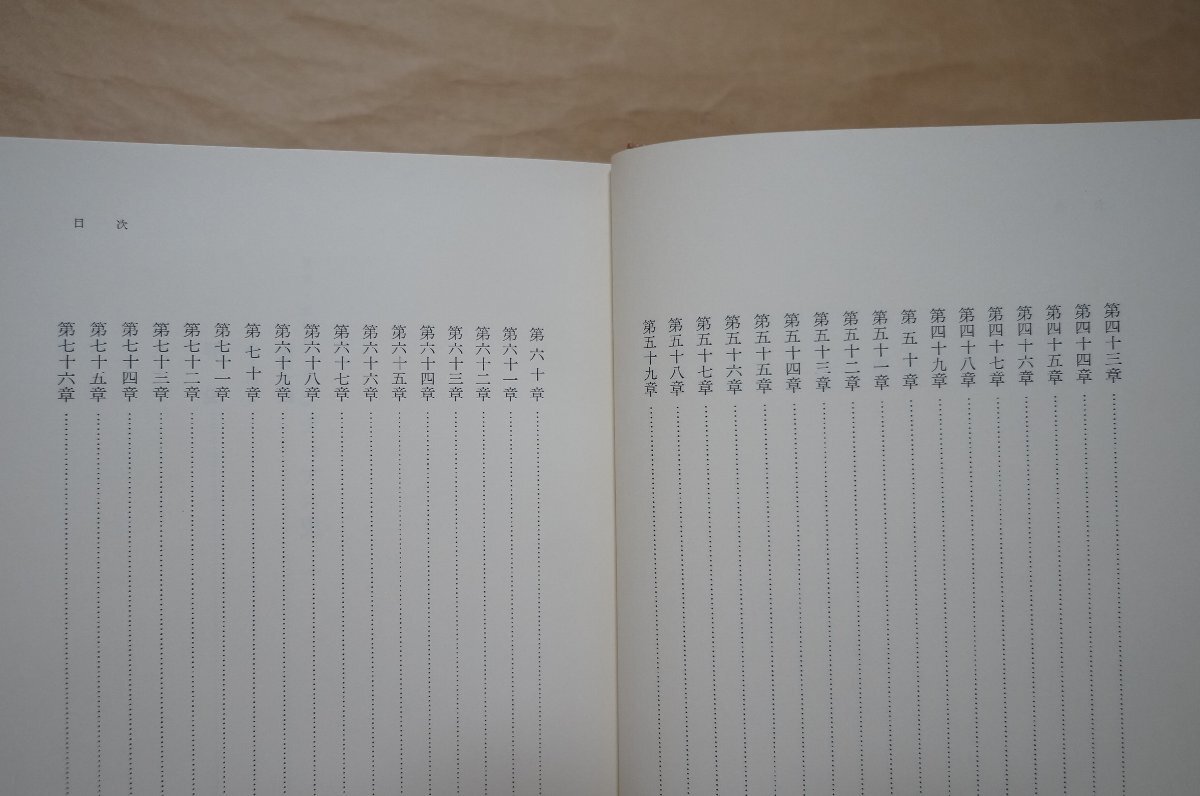 第四十三章
第四十四章
第四十五章
第四十六章
第四十七章
第四十八章
第四十九章
第五十章
第五十一章
第五十二章
第五十三章
第五十四章
第五十五章
第五十六章
第五十七章
第五十八章
第五十九章
目次
第六十章
第六十一章
第六十二章
第六十三章
第六十四章
第六十五章
第六十六章
第六十七章
第六十八章
第六十九章
第七十章
第七十一章
第七十二章
第七十三章
第七十四章
第七十五章
第七十六章